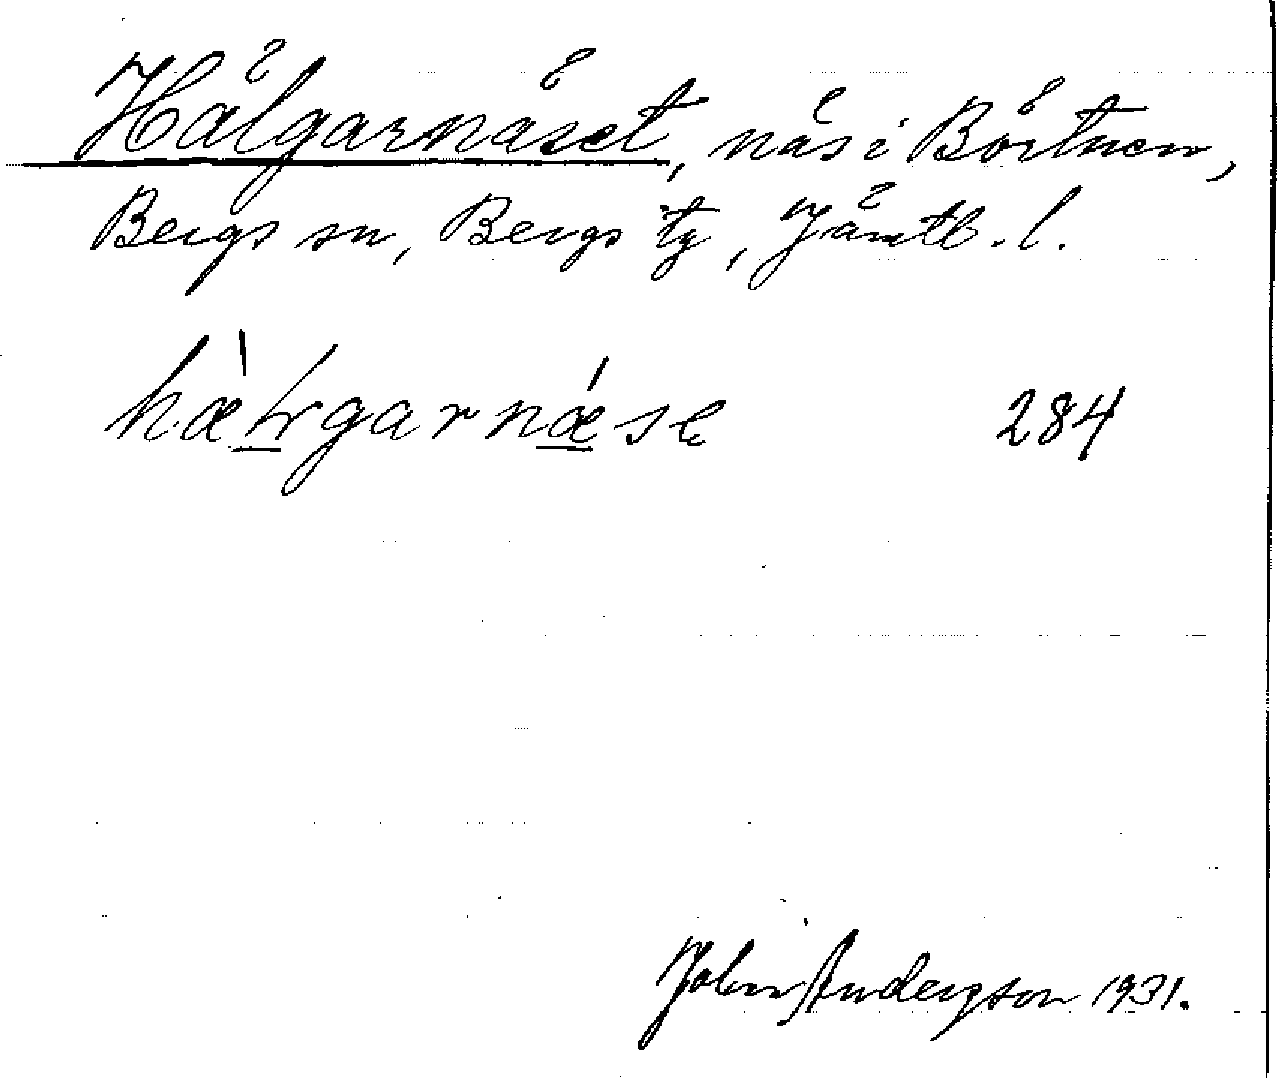 Hälgarnäset, näs i Börtnen,
Bergs sn, Bergs tg, Jämtl. l.
hæ̀łgarnǽse 284
John Andersson 1931.